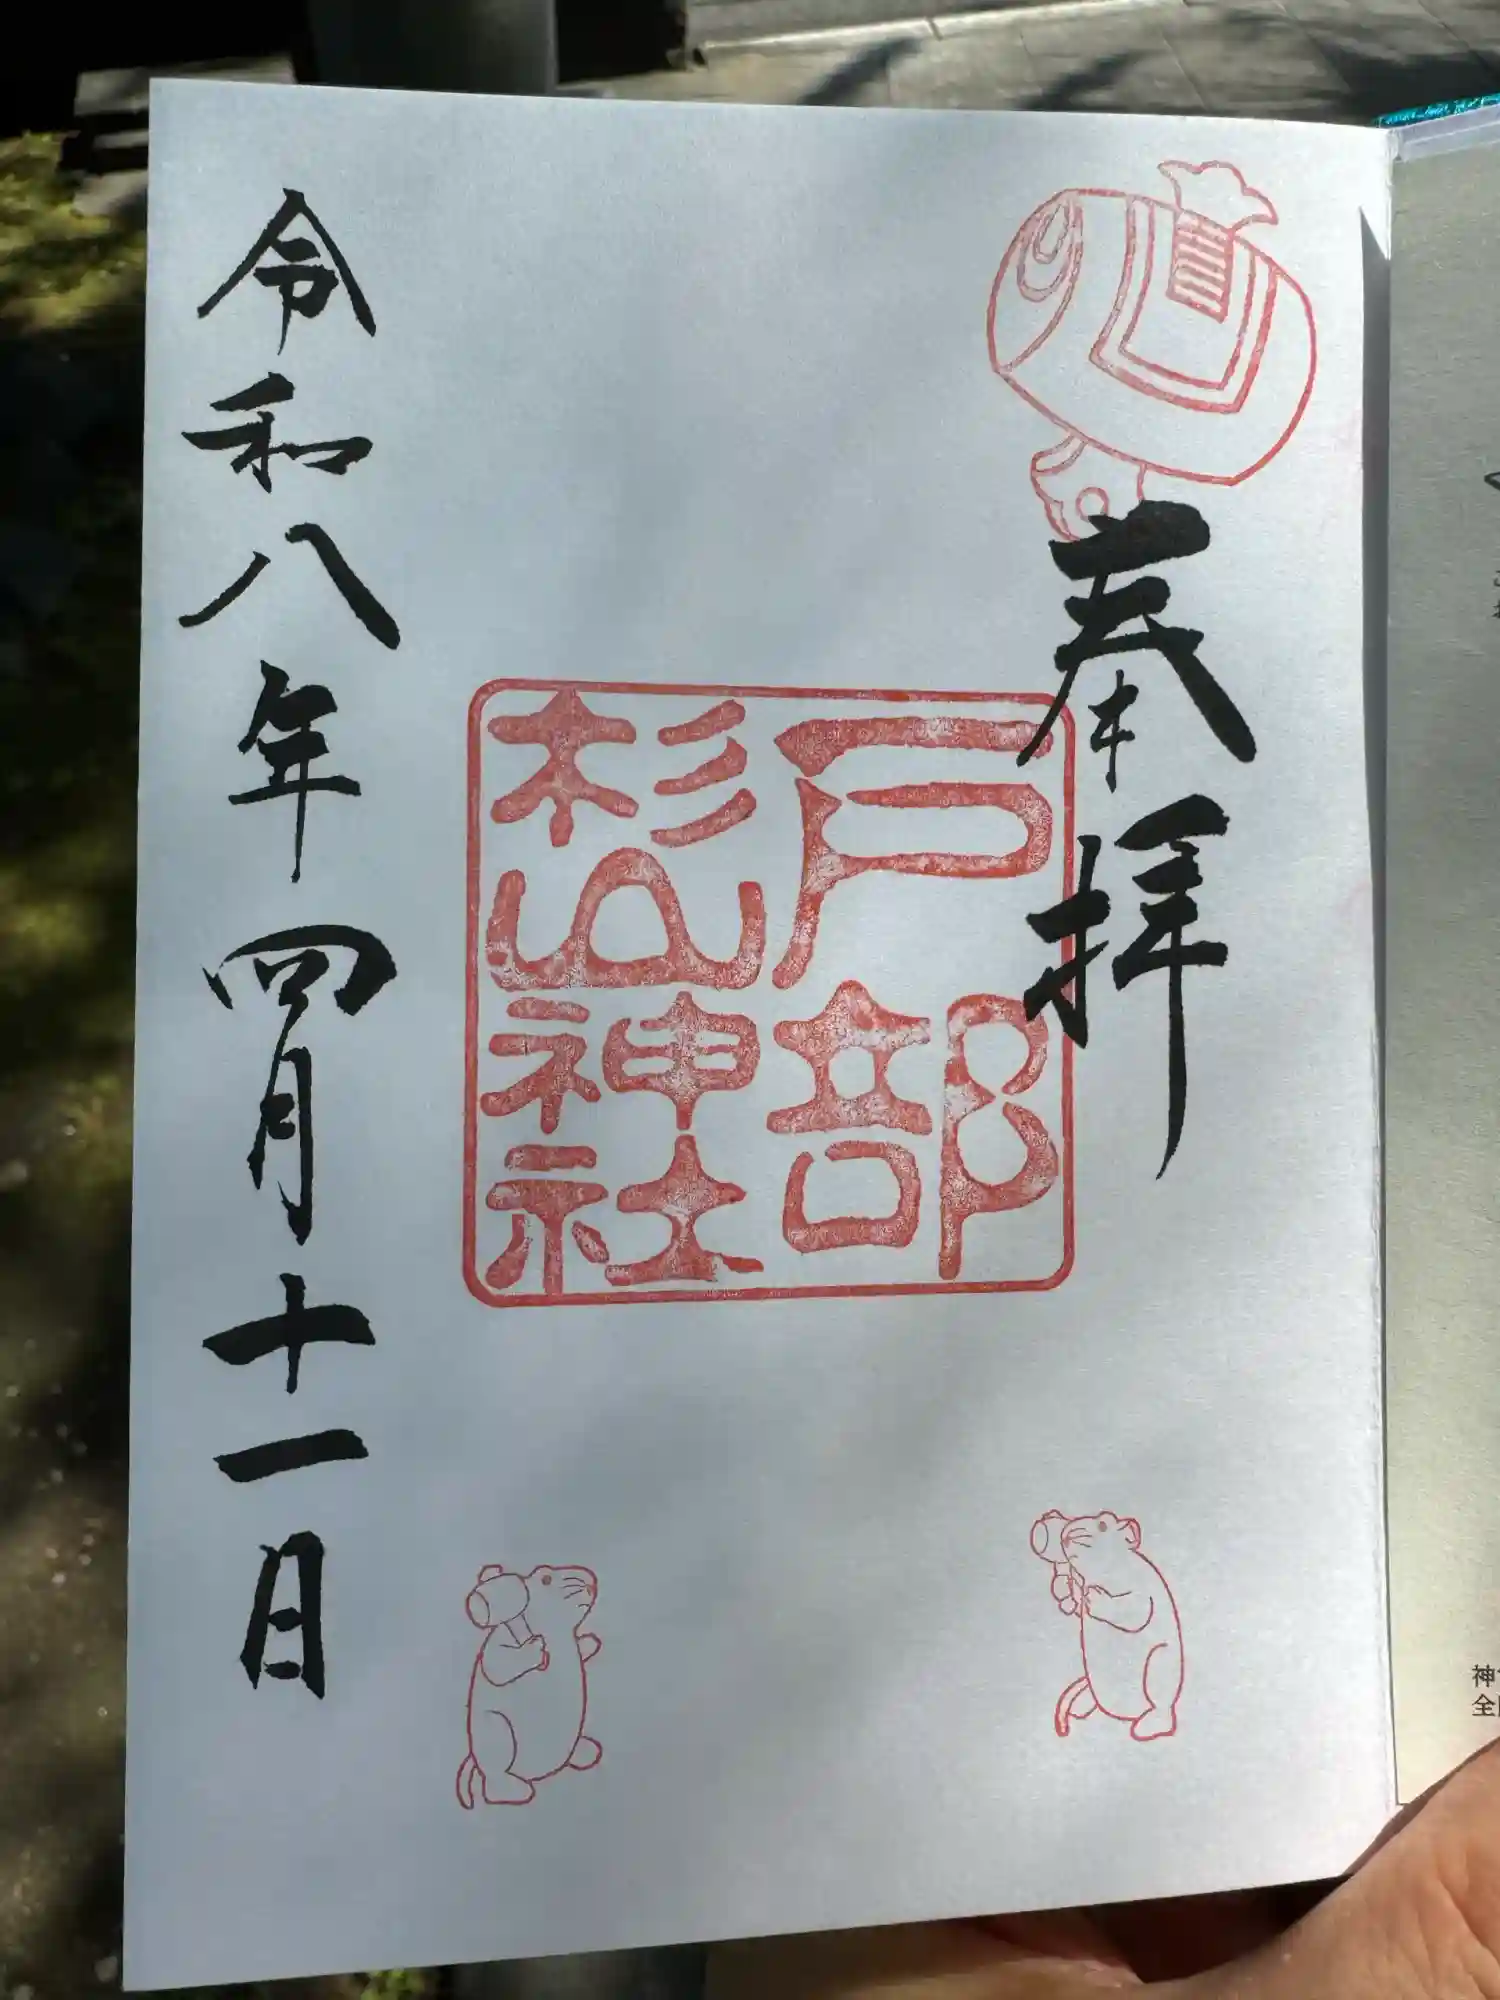 奉拝
戸部
杉山神社
令和八年四月十一日
神
全